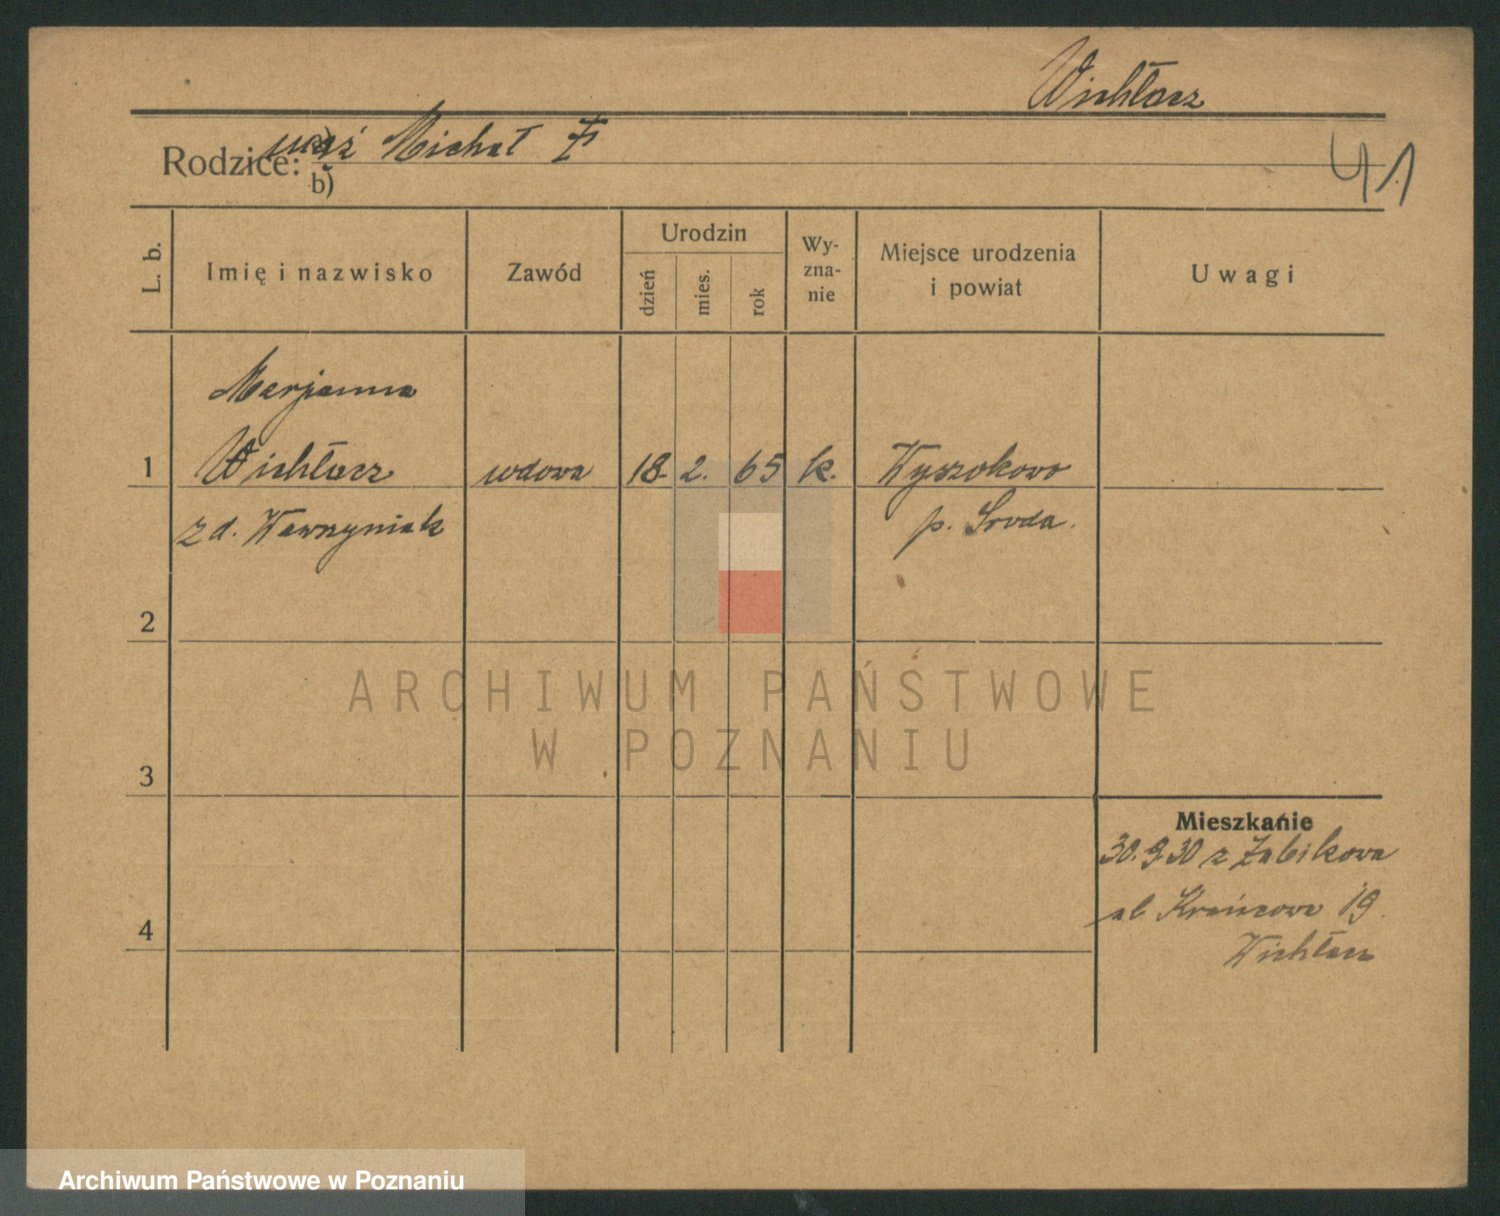 Wichłacz
Rodzice: a) mąż Michał Ƶ
b)
41
L. b.
Imię i nazwisko
Zawód
Urodzin
dzień
mies.
rok
Wy-
zna-
nie
Miejsce urodzenia
i powiat
Uwagi
Marjanna
1 Wichłacz wdowa 18. 2. 65 k. Wyszakowo
z d. Wawrzyniak p. Sroda.
2
3
Mieszkanie
30.9.30 z Żabikowa
ul. Krańcowa 19.
4
Wichłacz
ARCHIWUM PAŃSTWOWE
W POZNANIU
Archiwum Państwowe w Poznaniu